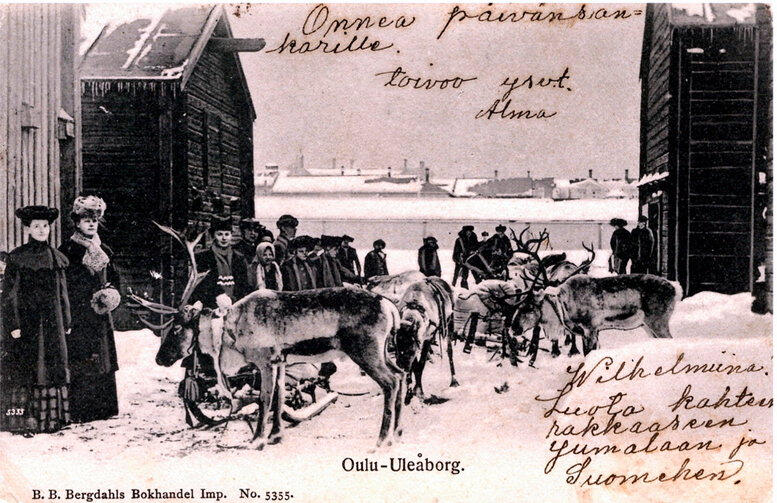 Onnea päivänsan=
karille.
toivoo ysvt.
Alma
Wilhelmiina.
Luota kahteen
rakkaaseen
Jumalaan ja
Suomehen.
5355
Oulu-Uleåborg.
B. B. Bergdahls Bokhandel Imp. No. 5355.